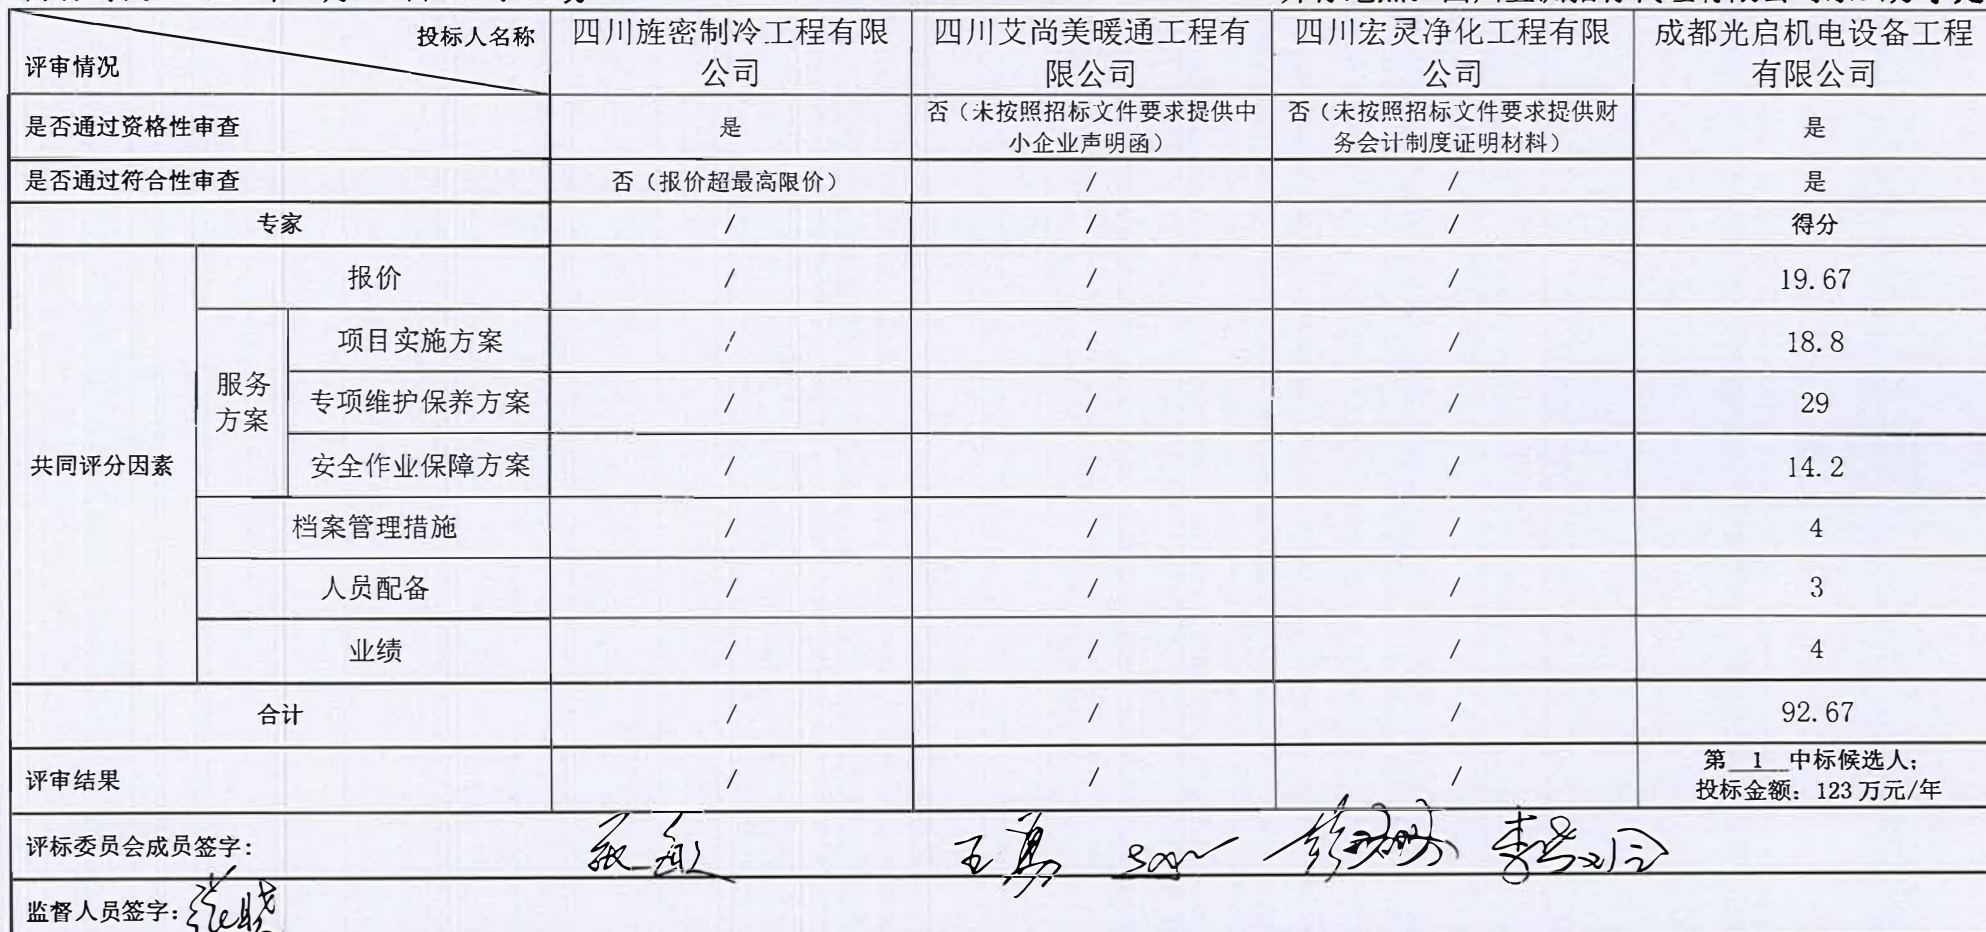 投标人名称
评审情况
四川旌密制冷工程有限
公司
四川艾尚美暖通工程有
限公司
四川宏灵净化工程有限
公司
成都光启机电设备工程
有限公司
是否通过资格性审查
是
否（未按照招标文件要求提供中
小企业声明函）
否（未按照招标文件要求提供财
务会计制度证明材料）
是
是否通过符合性审查
否（报价超最高限价）
/
/
是
专家
/
/
/
得分
共同评分因素
报价
/
/
/
19.67
服务
方案
项目实施方案
/
/
/
18.8
专项维护保养方案
/
/
/
29
安全作业保障方案
/
/
/
14.2
档案管理措施
/
/
/
4
人员配备
/
/
/
3
业绩
/
/
/
4
合计
/
/
/
92.67
评审结果
/
/
/
第 1 中标候选人；
投标金额：123万元/年
评标委员会成员签字：
监督人员签字：